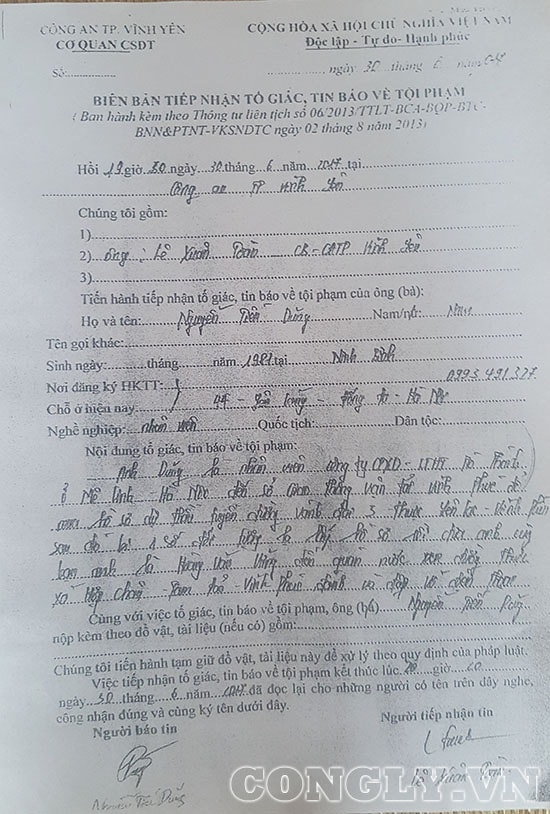 CÔNG AN TP. VĨNH YÊN
CƠ QUAN CSĐT
CỘNG HÒA XÃ HỘI CHỦ NGHĨA VIỆT NAM
Độc lập - Tự do- Hạnh phúc
Số:
ngày 30 tháng 6 năm
BIÊN BẢN TIẾP NHẬN TỐ GIÁC, TIN BÁO VỀ TỘI PHẠM
( Ban hành kèm theo Thông tư liên tịch số 06/2013/TTLT-BCA-BQP-BTC-
BNN&PTNT-VKSNDTC ngày 02 tháng 8 năm 2013)
Hồi 19 giờ 30 ngày 30 tháng 6 năm 2017 tại
Công an TP Vĩnh Yên
Chúng tôi gồm:
1)
2) Ông: Lê Xuân Toàn CB - CATP Vĩnh Yên
3)
Tiến hành tiếp nhận tố giác, tin báo về tội phạm của ông (bà):
Họ và tên: Nguyễn Tiến Dũng Nam/nữ: Nam
Tên gọi khác:
Sinh ngày: tháng năm 1981 tại Ninh Bình
Nơi đăng ký HKTT: 0993 491 327
Chỗ ở hiện nay 44 - - Hà Nội
Nghề nghiệp: nhân viên Quốc tịch: Dân tộc:
Nội dung tố giác, tin báo về tội phạm:
Anh Dũng là nhân viên công ty
ở Mê Linh - Hà Nội đến sở Giao thông vận tải Vĩnh Phúc để
hồ sơ dự thầu tuyến đường vành đai 3 - thuộc Yên Lạc - Vĩnh Phúc
sau đó bị 1 số đối tượng lạ lấy hồ sơ rồi chở anh cùng
bạn anh là Hoàng Văn đến quán nước ven đường thuộc
xã Hợp Châu - Tam Đảo Vĩnh Phúc đánh và
Cùng với việc tố giác, tin báo về tội phạm, ông (bà) Nguyễn Tiến Dũng
nộp kèm theo đồ vật, tài liệu (nếu có) gồm:
Chúng tôi tiến hành tạm giữ đồ vật, tài liệu này để xử lý theo quy định của pháp luật.
Việc tiếp nhận tố giác, tin báo về tội phạm kết thúc lúc 20 giờ 20
ngày 30 tháng 6 năm 2017 đã đọc lại cho những người có tên trên đây nghe,
công nhận đúng và cùng ký tên dưới đây.
Người báo tin
Người tiếp nhận tin
Nguyễn Tiến Dũng
Lê Xuân Toàn
CONGLY.VN